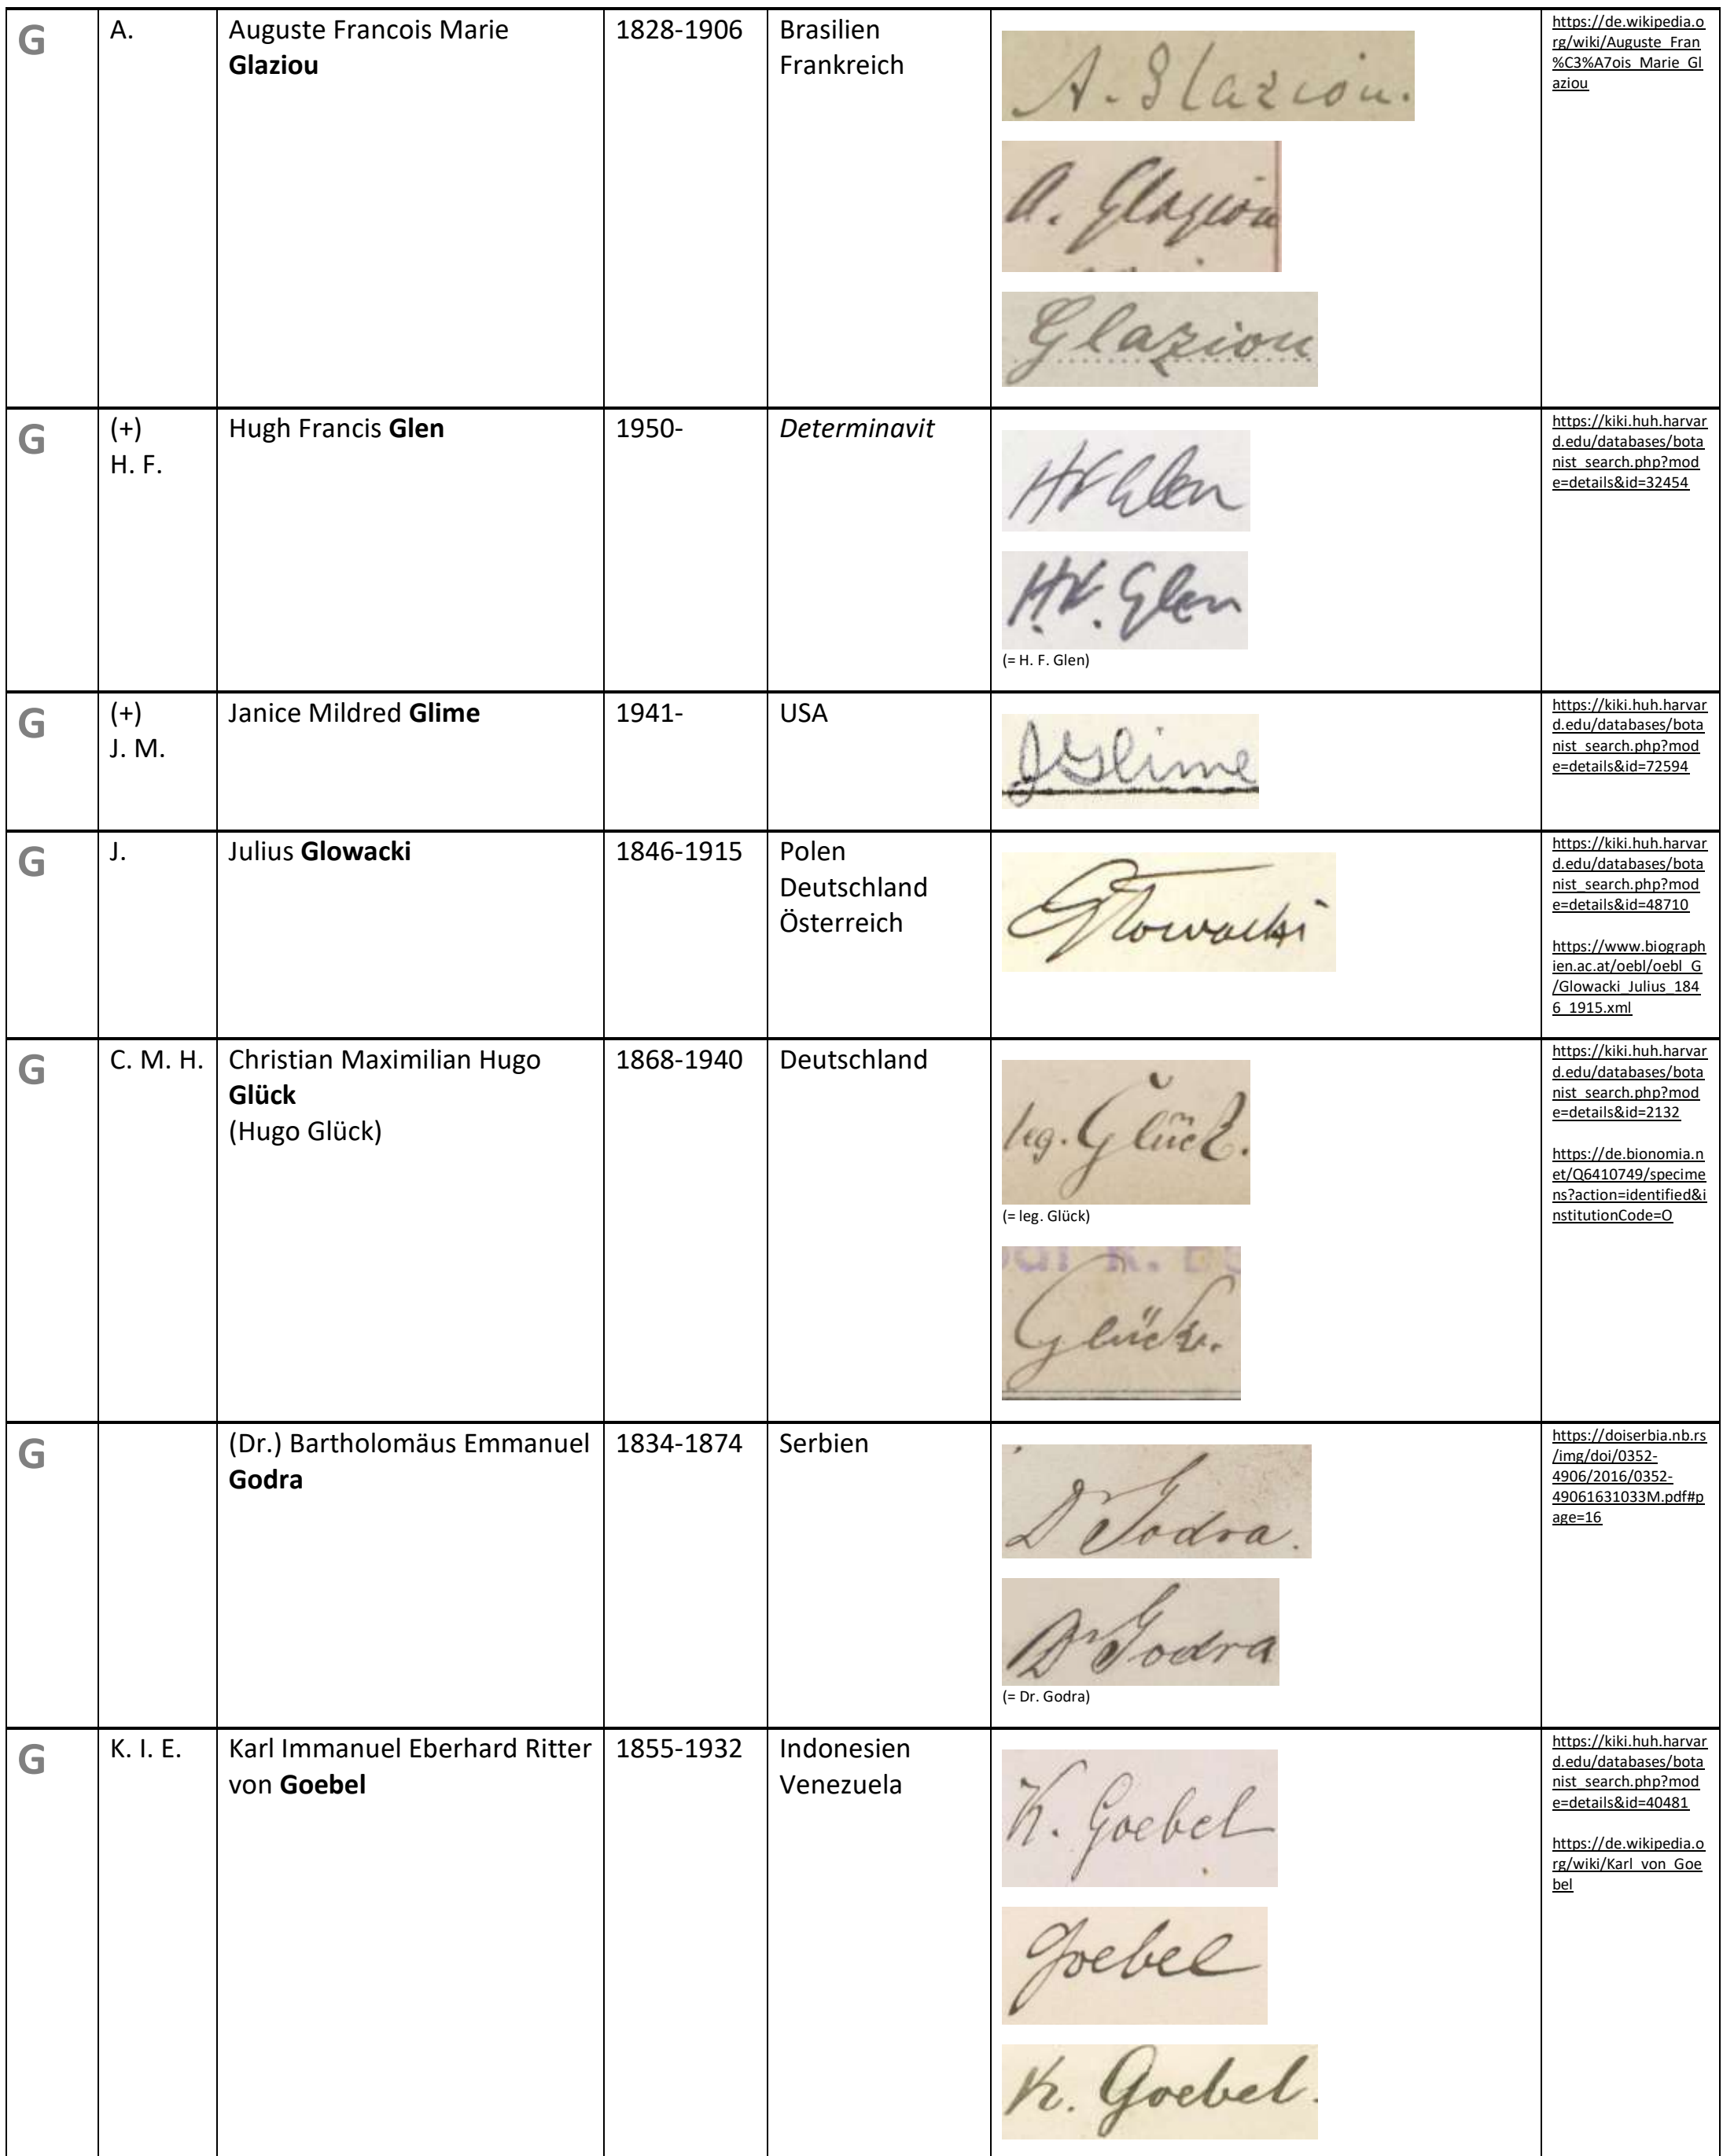 G
A.
Auguste Francois Marie
Glaziou
1828-1906
Brasilien
Frankreich
A. Glaziou.
A. Glaziou
Glaziou
https://de.wikipedia.o
rg/wiki/Auguste_Fran
%C3%A7ois_Marie_Gl
aziou
G
(+)
H. F.
Hugh Francis Glen
1950-
Determinavit
HF Glen
H.F. Glen
(= H. F. Glen)
https://kiki.huh.harvar
d.edu/databases/bota
nist_search.php?mod
e=details&id=32454
G
(+)
J. M.
Janice Mildred Glime
1941-
USA
JGlime
https://kiki.huh.harvar
d.edu/databases/bota
nist_search.php?mod
e=details&id=72594
G
J.
Julius Glowacki
1846-1915
Polen
Deutschland
Österreich
Glowacki
https://kiki.huh.harvar
d.edu/databases/bota
nist_search.php?mod
e=details&id=48710
https://www.biograph
ien.ac.at/oebl/oebl_G
/Glowacki_Julius_184
6_1915.xml
G
C. M. H.
Christian Maximilian Hugo
Glück
(Hugo Glück)
1868-1940
Deutschland
leg. Glück.
(= leg. Glück)
Glück.
https://kiki.huh.harvar
d.edu/databases/bota
nist_search.php?mod
e=details&id=2132
https://de.bionomia.n
et/Q6410749/specime
ns?action=identified&i
nstitutionCode=O
G
(Dr.) Bartholomäus Emmanuel
Godra
1834-1874
Serbien
Dr Godra.
Dr Godra
(= Dr. Godra)
https://doiserbia.nb.rs
/img/doi/0352-
4906/2016/0352-
49061631033M.pdf#p
age=16
G
K. I. E.
Karl Immanuel Eberhard Ritter
von Goebel
1855-1932
Indonesien
Venezuela
K. Goebel
Goebel
K. Goebel.
https://kiki.huh.harvar
d.edu/databases/bota
nist_search.php?mod
e=details&id=40481
https://de.wikipedia.o
rg/wiki/Karl_von_Goe
bel